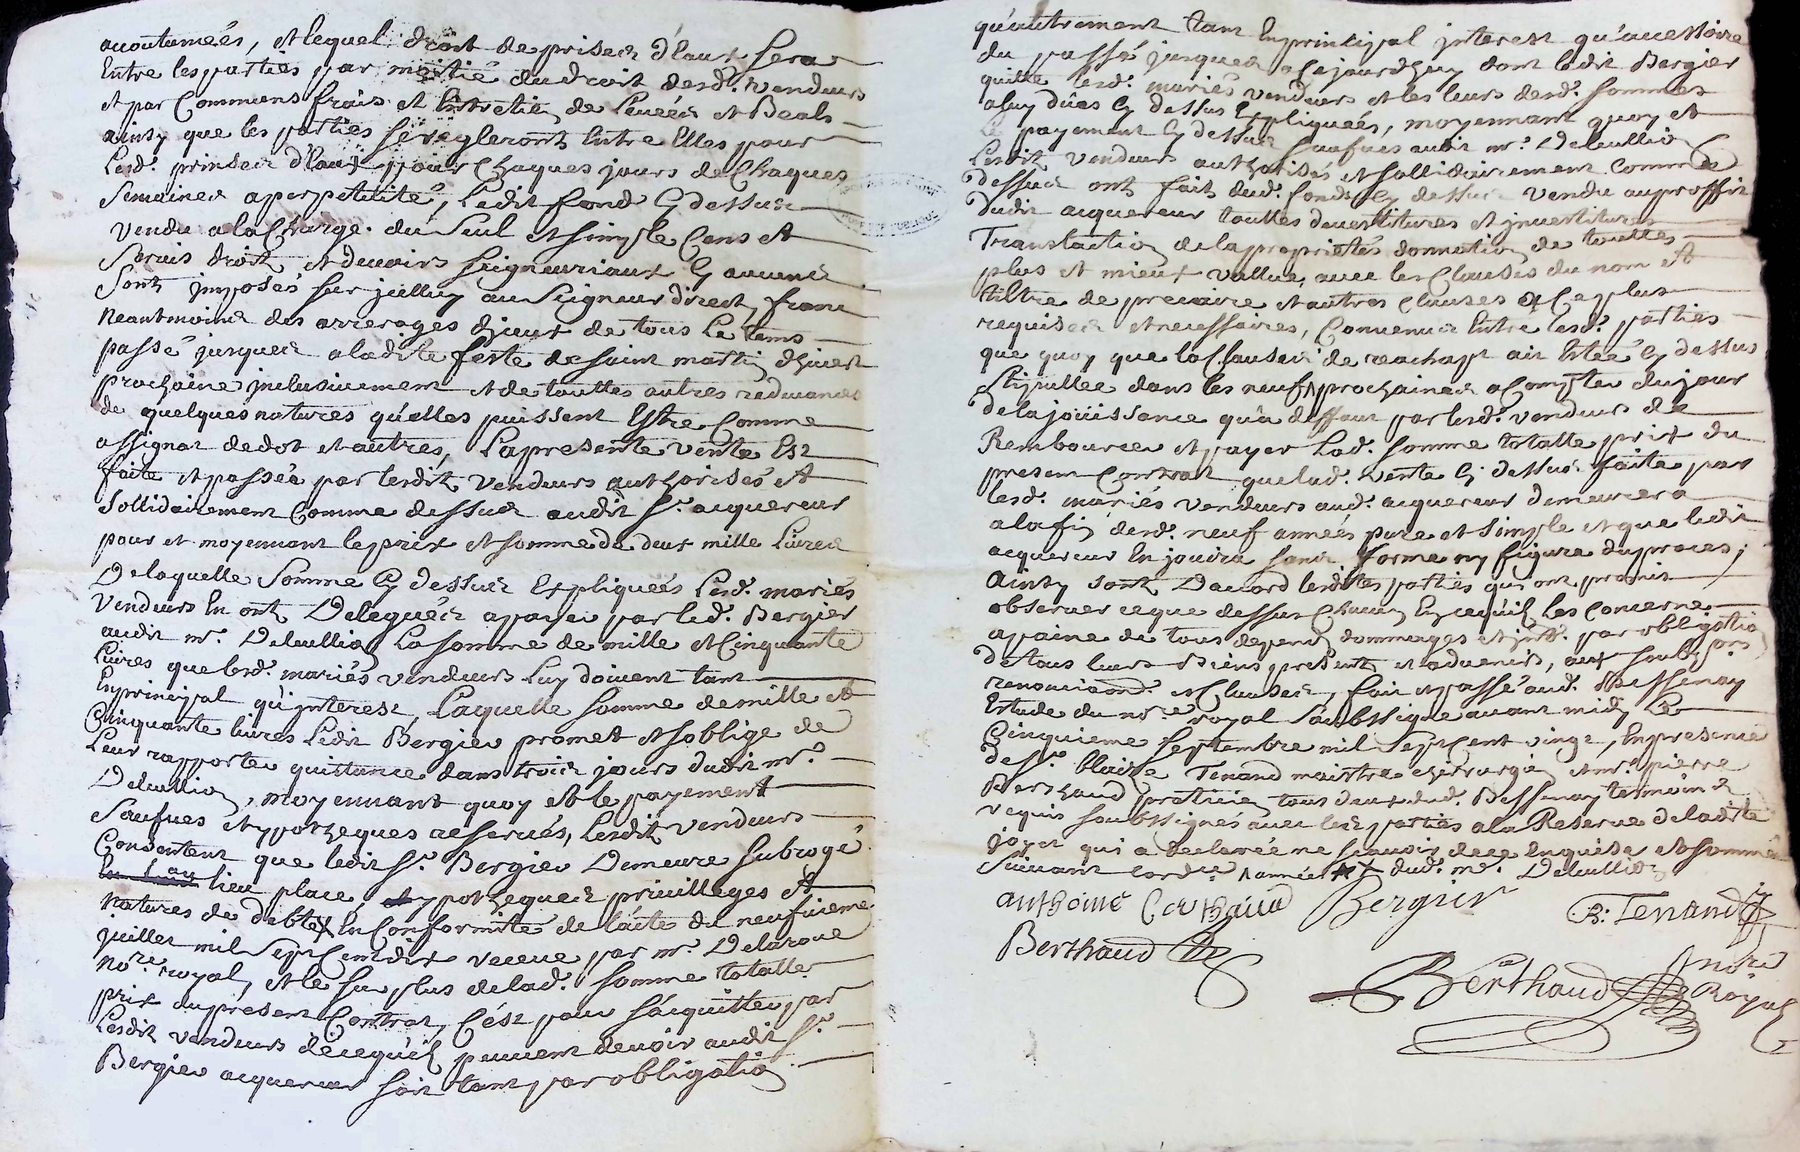 acoutumées, et lequel droit de prises d'eaux sera
Entre les parties par moitié du droit desd. vendeurs
et par Communs frais et Entretien de Levées et Beals
ainsy que les parties se regleront Entre Elles pour
Lesd. prinses d'Eaux pour Chaques jours de Chaques
Semaines a perpetuité, Ledit fond Cy dessus
vendu a la Charge du Seul et simple Cens et
Servis droits et devoirs seigneuriaux sy aucuns
Sont imposés sur jcelluy au Seigneur direct, franc
neantmoins des arrerages d'jceux de tous le tems
passé jusques a ladite feste de saint martin d'hivert
prochaine inclusivement et de touttes autres redevances
de quelques natures qu'elles puissent Estre Comme
assignat de dot et autres, La presente vente Est
faite et passée par lesdits vendeurs authorisés et
Sollidairement Comme dessus audit Sr. acquereur
pour et moyennant le prix et somme de deux mille Livres
De laquelle Somme Cy dessus Expliquées Lesd. mariés
Vendeurs En ont Delegués a payer par led. Bergier
audit mr. Deleullion La somme de mille et Cinquante
Livres que lesd. mariés vendeurs Luy doivent tant
En principal qu'jnterest, Laquelle somme de mille et
Cinquante livres Ledit Bergier promet et soblige de
Leur rapporter quittance dans trois jours dudit mr.
Deleullion, moyennant quoy et le payement
Saufues et ypotheques reservés, Lesdits vendeurs
Consentent que ledit Sr. Bergier Demeure subrogé
au lieu place, ypotheques privilleges et
natures de debte En Conformité de l'acte du neufvieme
juillet mil Sept Cent dix receue par mr. Delaroue
nore. royal, et le surplus de lad. somme totalle
prix du present Contrat, C'est pour s'acquitter par
Lesdit vendeurs de ce qu'ils peuvent devoir audit Sr.
Bergier acquereur soit tant par obligation
qu'autrement tant En principal jnterest qu'accessoire
du passé jusques a Cejourdhuy dont ledit Bergier
quitte lesd. mariés vendeurs et les leurs desd. sommes
a luy dûes Cy dessus Expliqueés, moyennant quoy et
Le payement Cy dessus saufues audit mr. Deleullion
Lesdits vendeurs authorisés et sollidairement Comme
dessus ont fait dud. fonds Cy dessus vendu au proffit
dudit acquereur touttes devestitures et jnvestitures
Translaction de la proprietés donnation de touttes
plus et mieux vallue, avec les Clauses du nom et
tiltre de precaire et autres clauses a Ce plus
requises et necessaires, Convenus Entre lesd. parties
que quoy que la Clause de reachapt ait Estée Cy dessus
Stipullée dans les neuf prochaines a Compter du jour
de la joüissance qu'a deffaut par lesd. vendeurs de
Rembourcer et payer Lad. somme totalle prix du
present Contrat que lad. vente Cy dessus faite par
lesd. mariés vendeurs aud. acquereur demeurera
a la fin desd. neuf années pure et simple et que ledit
acquereur En jouira sans forme ny figure du proces,
ainsy sont D'accord lesdites parties qui ont promis
observer ce que dessus Chacun En ce quil les Concerne
a paine de tous depens dommages et jnts. par obligation
de tous leurs Biens presents et advenirs, aux soubmons.
renonciaond. et Clauses, fait et passé aud. Bessenay
Estude du nore. royal soubssigne avant midy Le
Cinquieme Septembre mil Sept Cent vingt, En presence
de Sr. blaise Tenand maistre chirurgien et mr. pierre
Berthaud praticien tous deux dud. Bessenay temoins
requis soubssignés avec lesd. parties a la Reserve de ladite
joyet qui a declarée ne scavoir de ce Enquise et sommé
Suivant lordce. années dud. mr. Deleullion
anthoine Bergier B: Tenand
Berthaud
Berthaud nore Royal